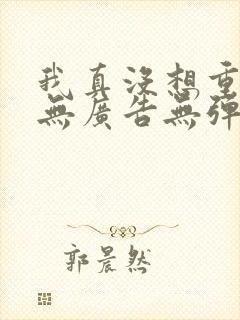 我真沒想重
無廣告無彈
郭晨然